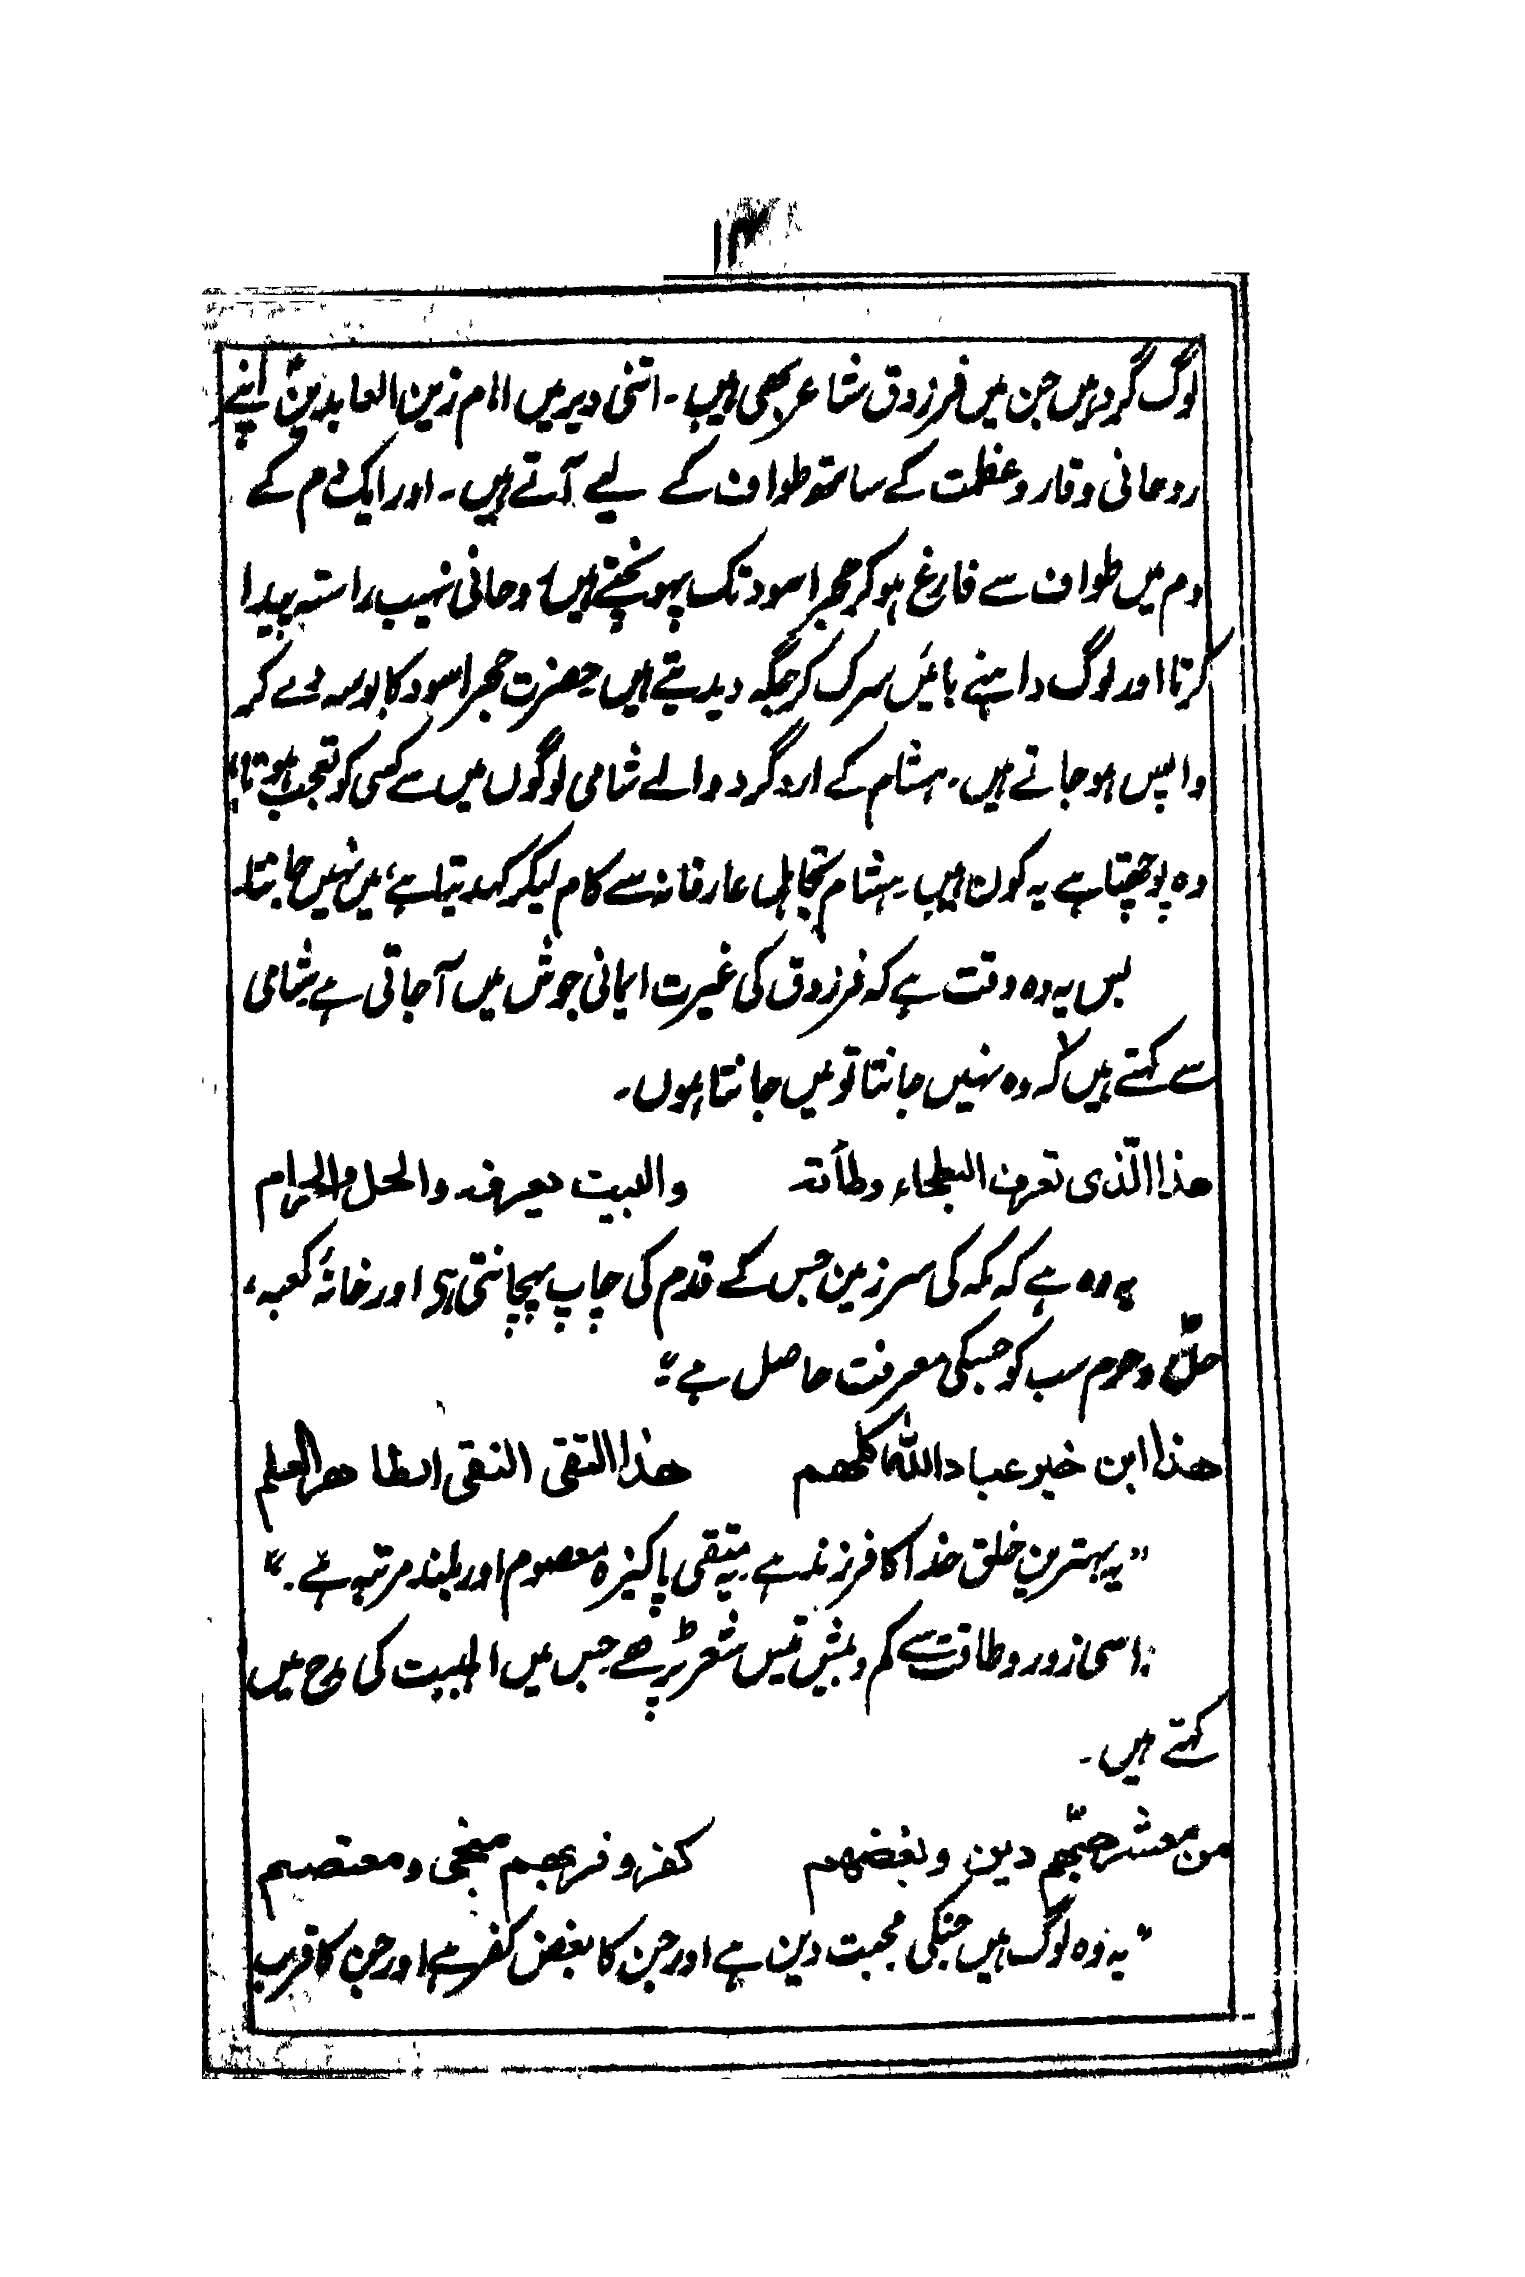 ۱۳
لوگ گرد ہیں جن میں فرزدق شاعر بھی ہیں۔ اتنی دیر میں امام زین العابدینؑ اپنے
روحانی وقار و عظمت کے ساتھ طواف کے لیے آتے ہیں۔ اور ایک دم کے
دم میں طواف سے فارغ ہو کر حجر اسود تک پہونچتے ہیں۔ روحانی نہیب راستہ پیدا
کرتا اور لوگ داہنے بائیں سرک کر جگہ دیدیتے ہیں حضرت حجر اسود کا بوسہ دے کر
واپس ہو جاتے ہیں۔ ہشام کے ارد گرد والے شامی لوگوں میں سے کسی کو تعجب ہوتا ہے
وہ پوچھتا ہے یہ کون ہیں۔ ہشام تجاہل عارفانہ سے کام لیکر کہدیتا ہے، میں نہیں جانتا۔
بس یہ وہ وقت ہے کہ فرزدق کی غیرت ایمانی جوش میں آجاتی ہے شامی
سے کہتے ہیں کہ وہ نہیں جانتا تو میں جانتا ہوں۔
ھذا الّذی تعرف البطحاء وطأتہ والبیت یعرفہ والحل والحرام
یہ وہ ہے کہ مکہ کی سرزمین جس کے قدم کی چاپ پہچانتی ہے اور خانۂ کعبہ،
حلّ و حرم سب کو جسکی معرفت حاصل ہے“
ھذا ابن خیر عباد اللہ کلھم ھذا التقی النقی الطاھر العلم
”یہ بہترین خلق خدا کا فرزند ہے یہ متقی پاکیزہ معصوم اور بلند مرتبہ ہے۔“
اسی زور و طاقت سے کم و بیش تیس شعر پڑھے جس میں اہلبیت کی مدح میں
کہتے ہیں۔
من معشر حبّھم دین و بغضھم کفر و قربھم منجی و معتصم
”یہ وہ لوگ ہیں جنکی محبت دین ہے اور جن کا بغض کفر ہے اور جن کا قرب